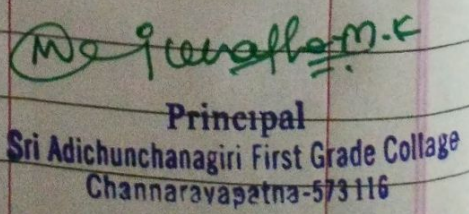 M.K
Principal
Sri Adichunchanagiri First Grade Collage
Channarayapatna-573116